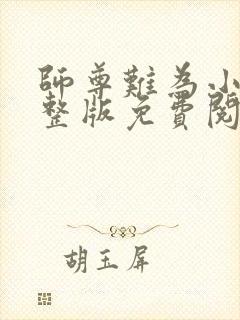 師尊難為小
整版免費閱
胡玉屏